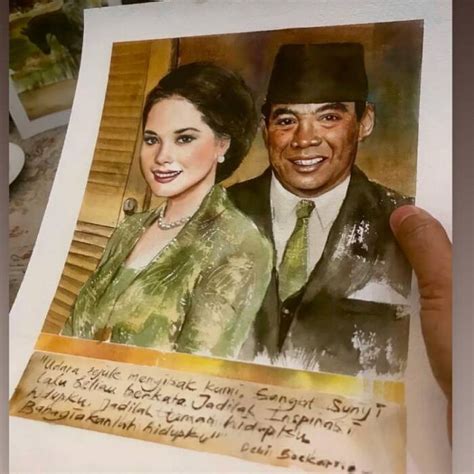 "Udara sejuk mengibak kami, Sangat Sunyi
Lalu beliau berkata Jadilah Inspirasi
hidupku, Jadilah Taman hidupku
Bahagiakanlah hidupku"
Debi Soekarno